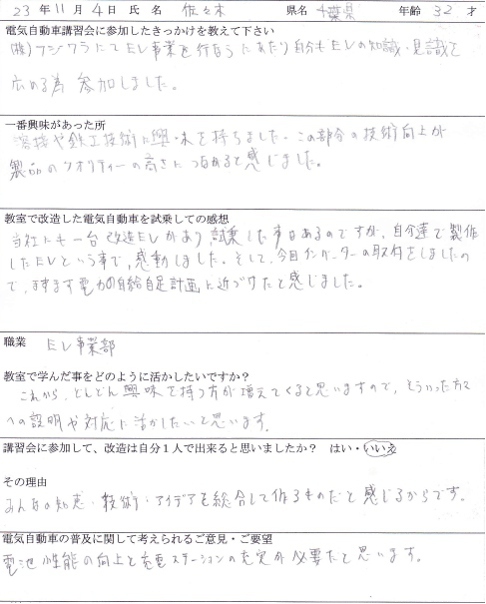 23 年 11 月 4 日 氏 名 佐々木 県名 千葉県 年齢 32 才
電気自動車講習会に参加したきっかけを教えて下さい
(株)フジワラにてEV事業を行なうにあたり自分もEVの知識・見識を
広める為 参加しました。
一番興味があった所
溶接や鉄工技術に興味を持ちました。この部分の技術向上が
製品のクオリティーの高さにつながると感じました。
教室で改造した電気自動車を試乗しての感想
当社にも一台改造EVがあり試乗した事はあるのですが、自分達で製作
したEVという事で、感動しました。そして、今日インバーターの取付をしましたの
で、ますます電力の自給自足計画に近づけたと感じました。
職業 EV事業部
教室で学んだ事をどのように活かしたいですか？
これから、どんどん興味を持つ方が増えてくると思いますので、そういった方々
への説明や対応に活かしたいと思います。
講習会に参加して、改造は自分1人で出来ると思いましたか？ はい・いいえ
その理由
みんなの知恵・技術・アイデアを総合して作るものだと感じるからです。
電気自動車の普及に関して考えられるご意見・ご要望
電池性能の向上と充電ステーションの充実が必要だと思います。